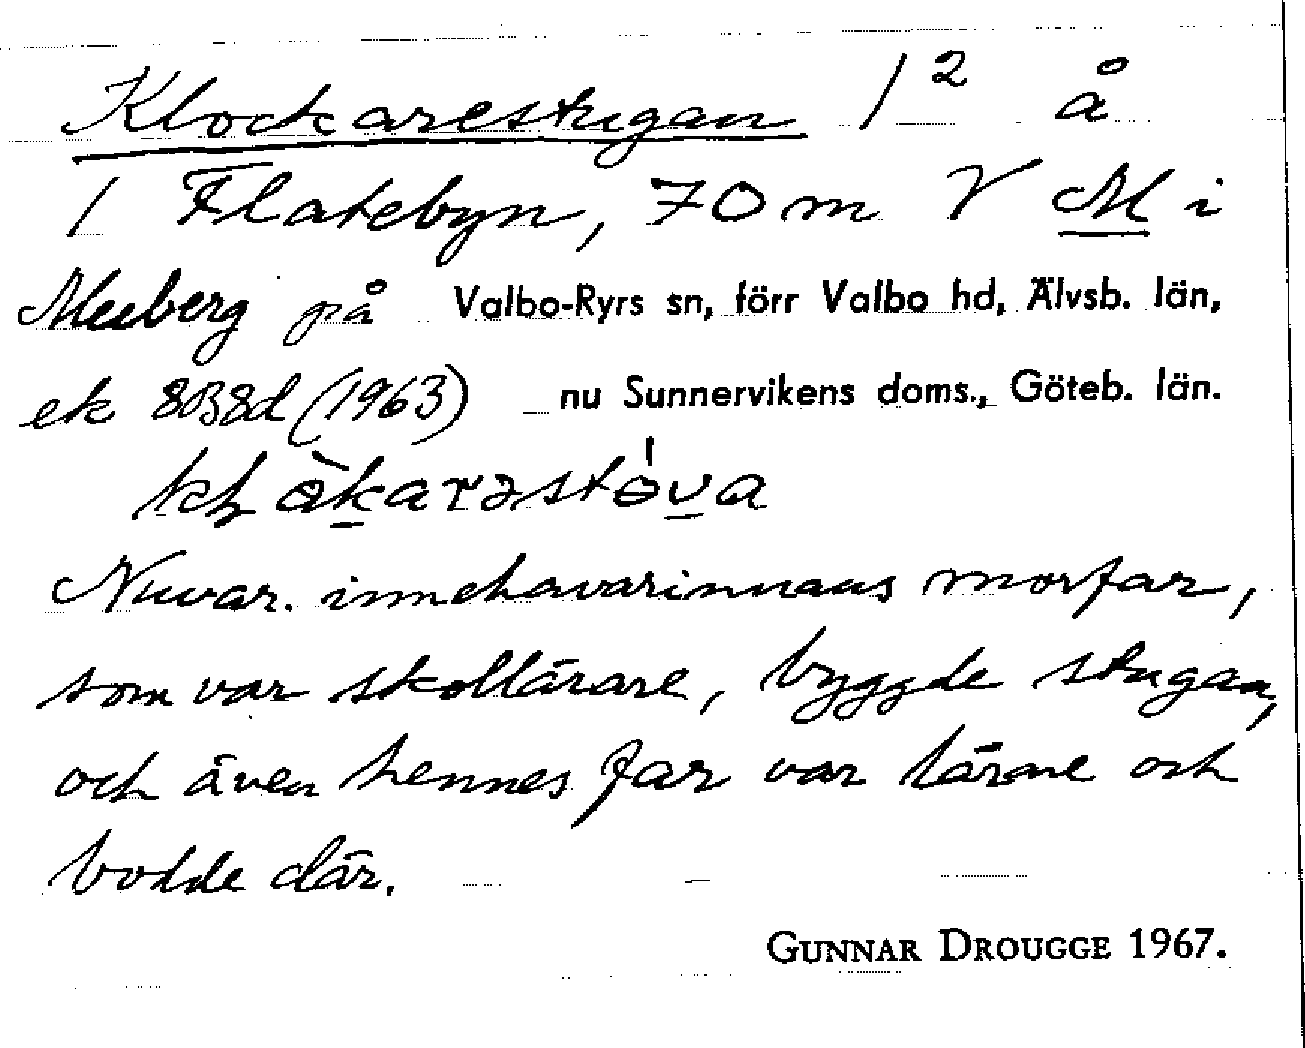 Klockarestugan 1² å
1 Flatebyn, 70 m V M i
Meeberg på Valbo-Ryrs sn, förr Valbo hd, Älvsb. län,
ek 8B8d (1963) nu Sunnervikens doms., Göteb. län.
Nuvar. innehavarinnans morfar,
som var skollärare, byggde stugan,
och även hennes far var lärare och
bodde där.
GUNNAR DROUGGE 1967.